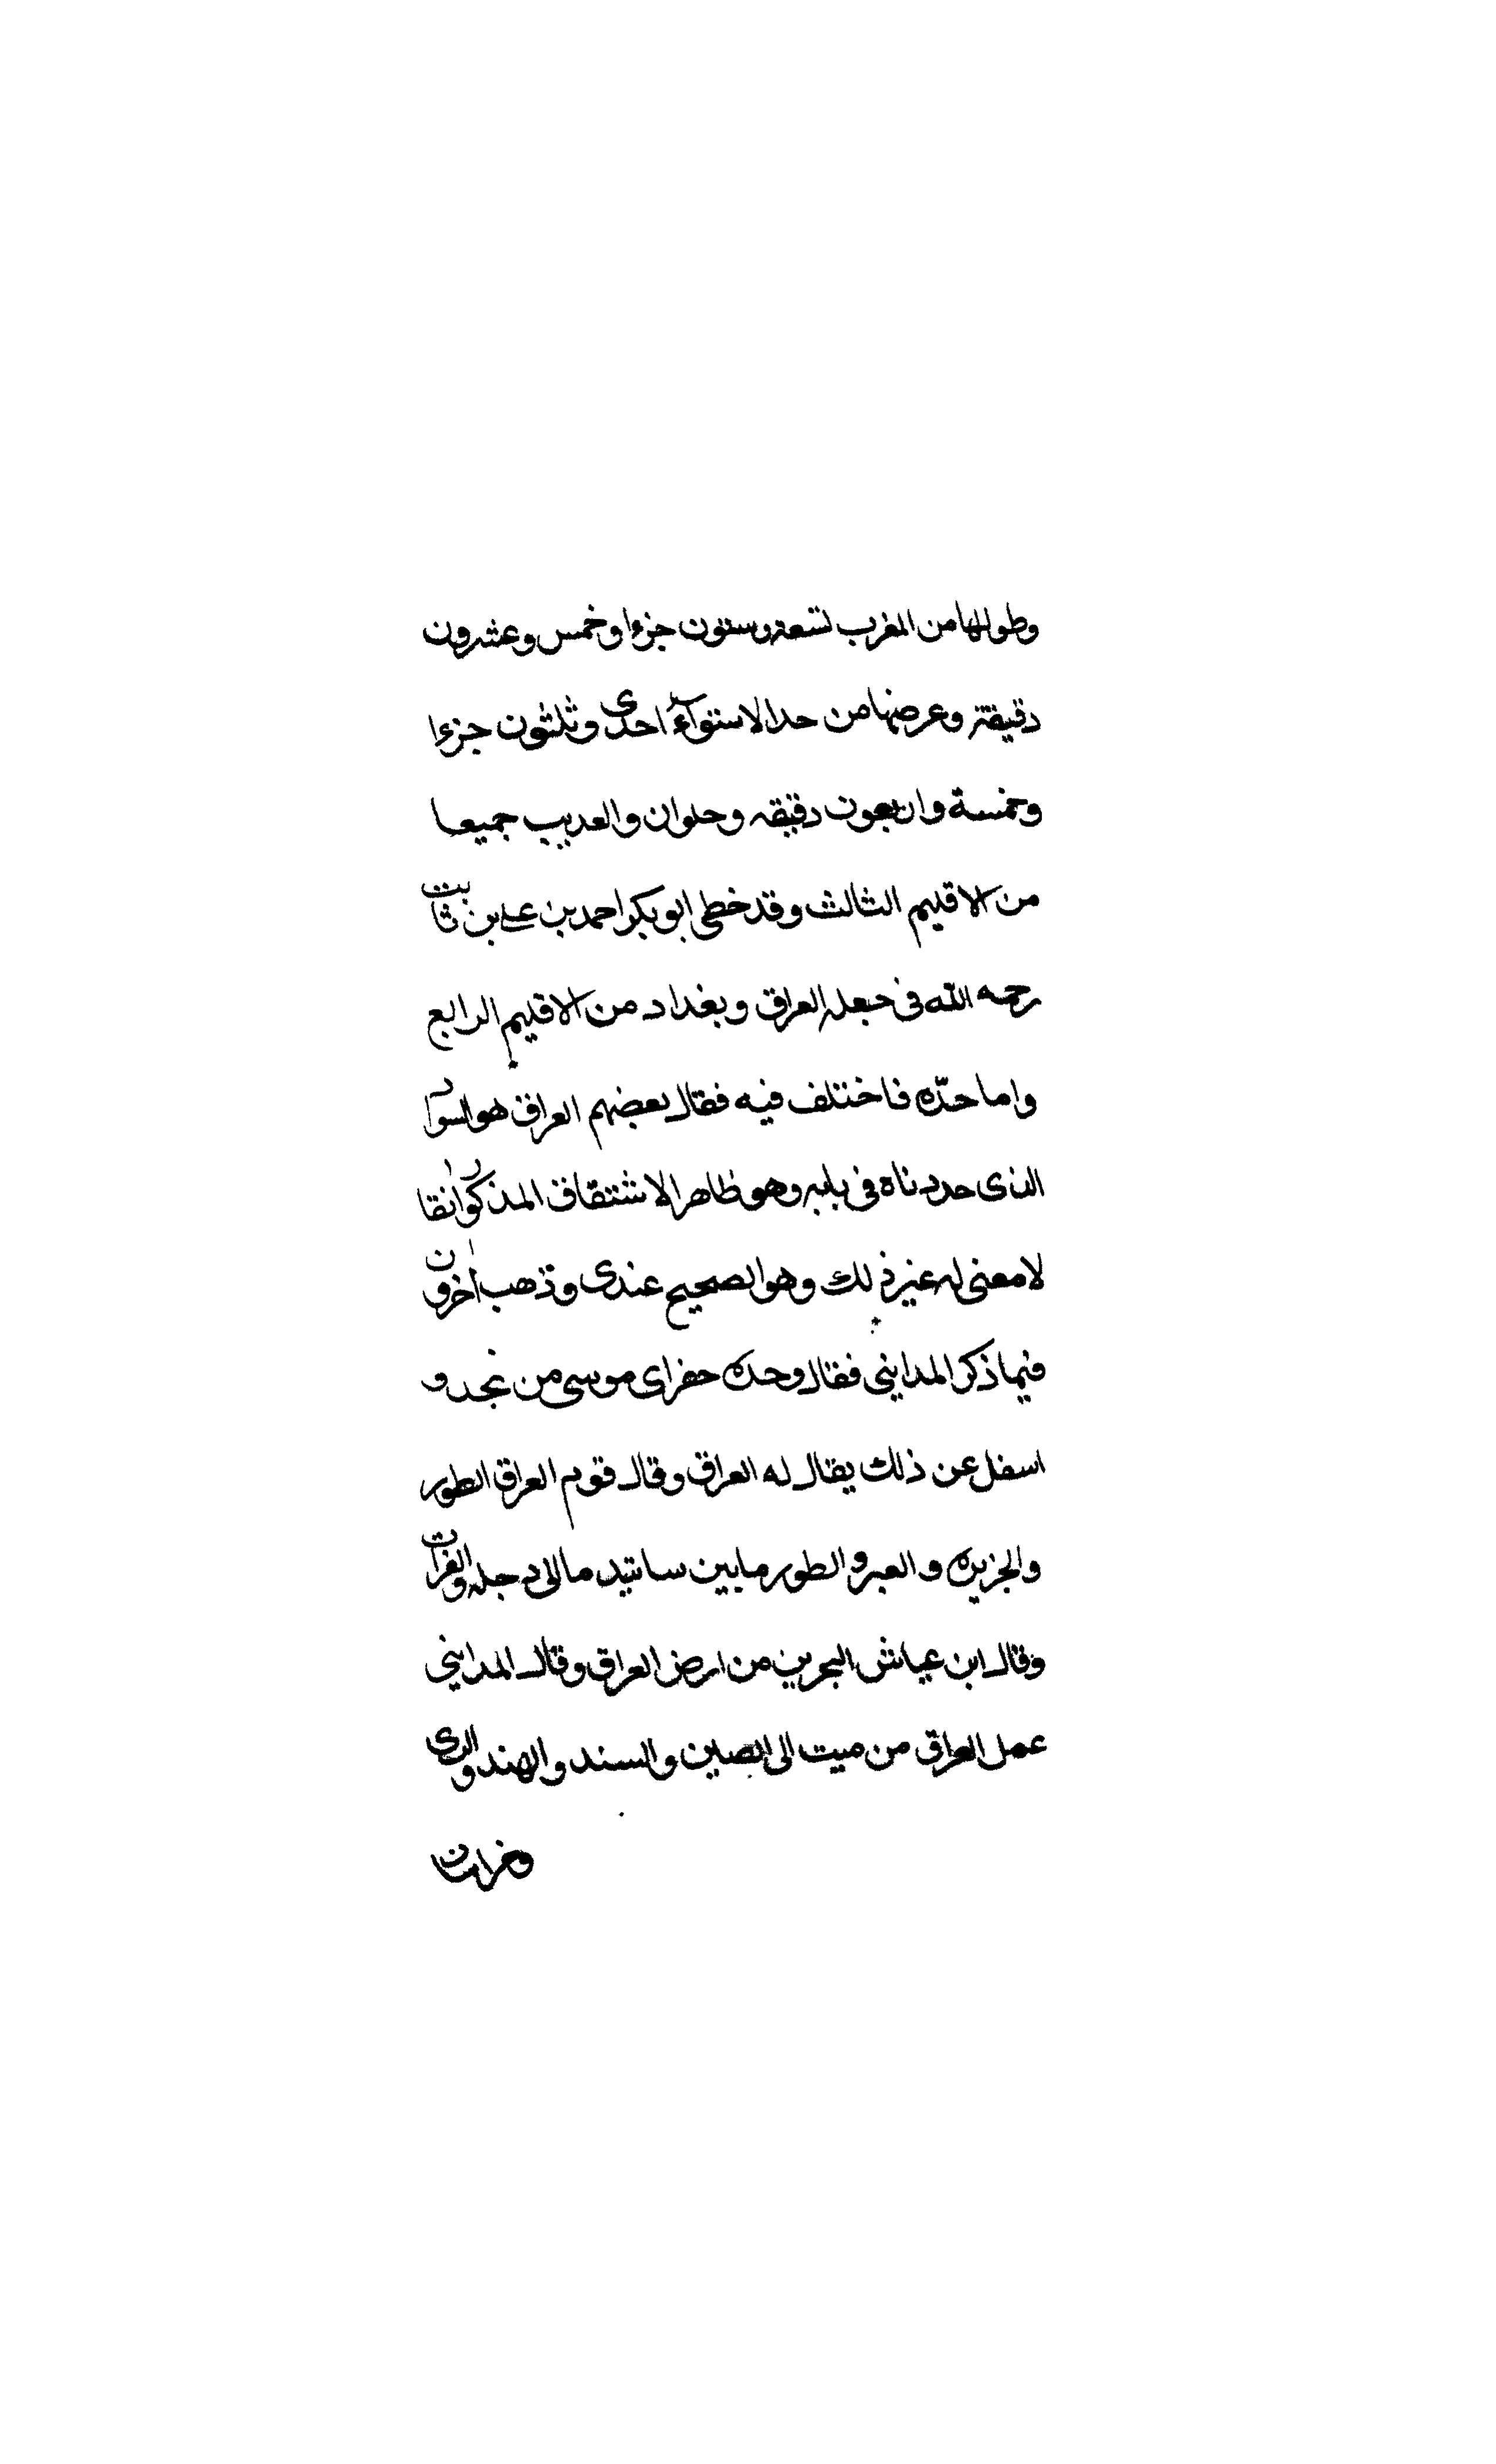 وطولها من المغرب تسعة وستون جزءا وخمس وعشرون
دقيقة وعرضها من حد الاستوآء احدى وثلثون جزءا
وخمسة واربعون دقيقه وحلوان والعديب جميعا
من الاقليم الثالث وقد خطى ابو بكر احمد بن على بن ثابت
رحمه الله فى جعله العراق وبغداد من الاقليم الرابع
واما حدّه فاختلف فيه فقال بعضهم العراق هو السواد
الذى حددناه فى بابه وهو ظاهر الاشتقاق المذكور انفا
لا معنى له غير ذلك وهو الصحيح عندى وذهب اخرون
فيما ذكر المداينى فقال وحده حفر ابى موسى من نجد و
اسفل عن ذلك يقال له العراق وقال قوم العراق الطور
والجزيره والعبر والطور ما بين ساتيدما الى دجله والفرات
وقال ابن عياش البحرين من ارض العراق وقال المداينى
عمل العراق من هيت الى الصين والسند والهند والرى
وخراسان